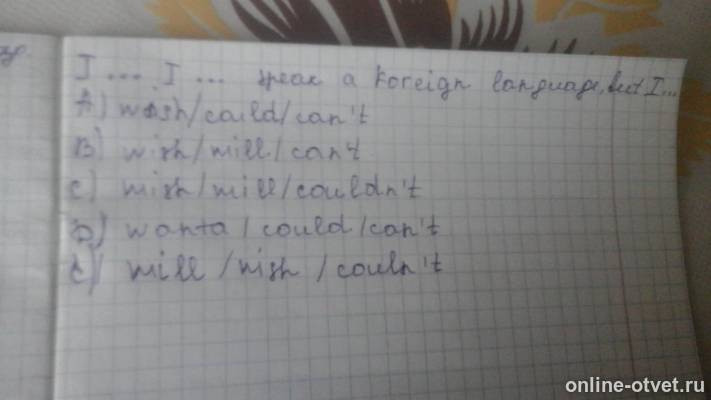 I ... I ... speak a foreign language, but I...
A) wish/could/can't
B) wish/will/can't
C) wish/will/couldn't
D) wanta/could/can't
E) will/wish/couln't
online-otvet.ru